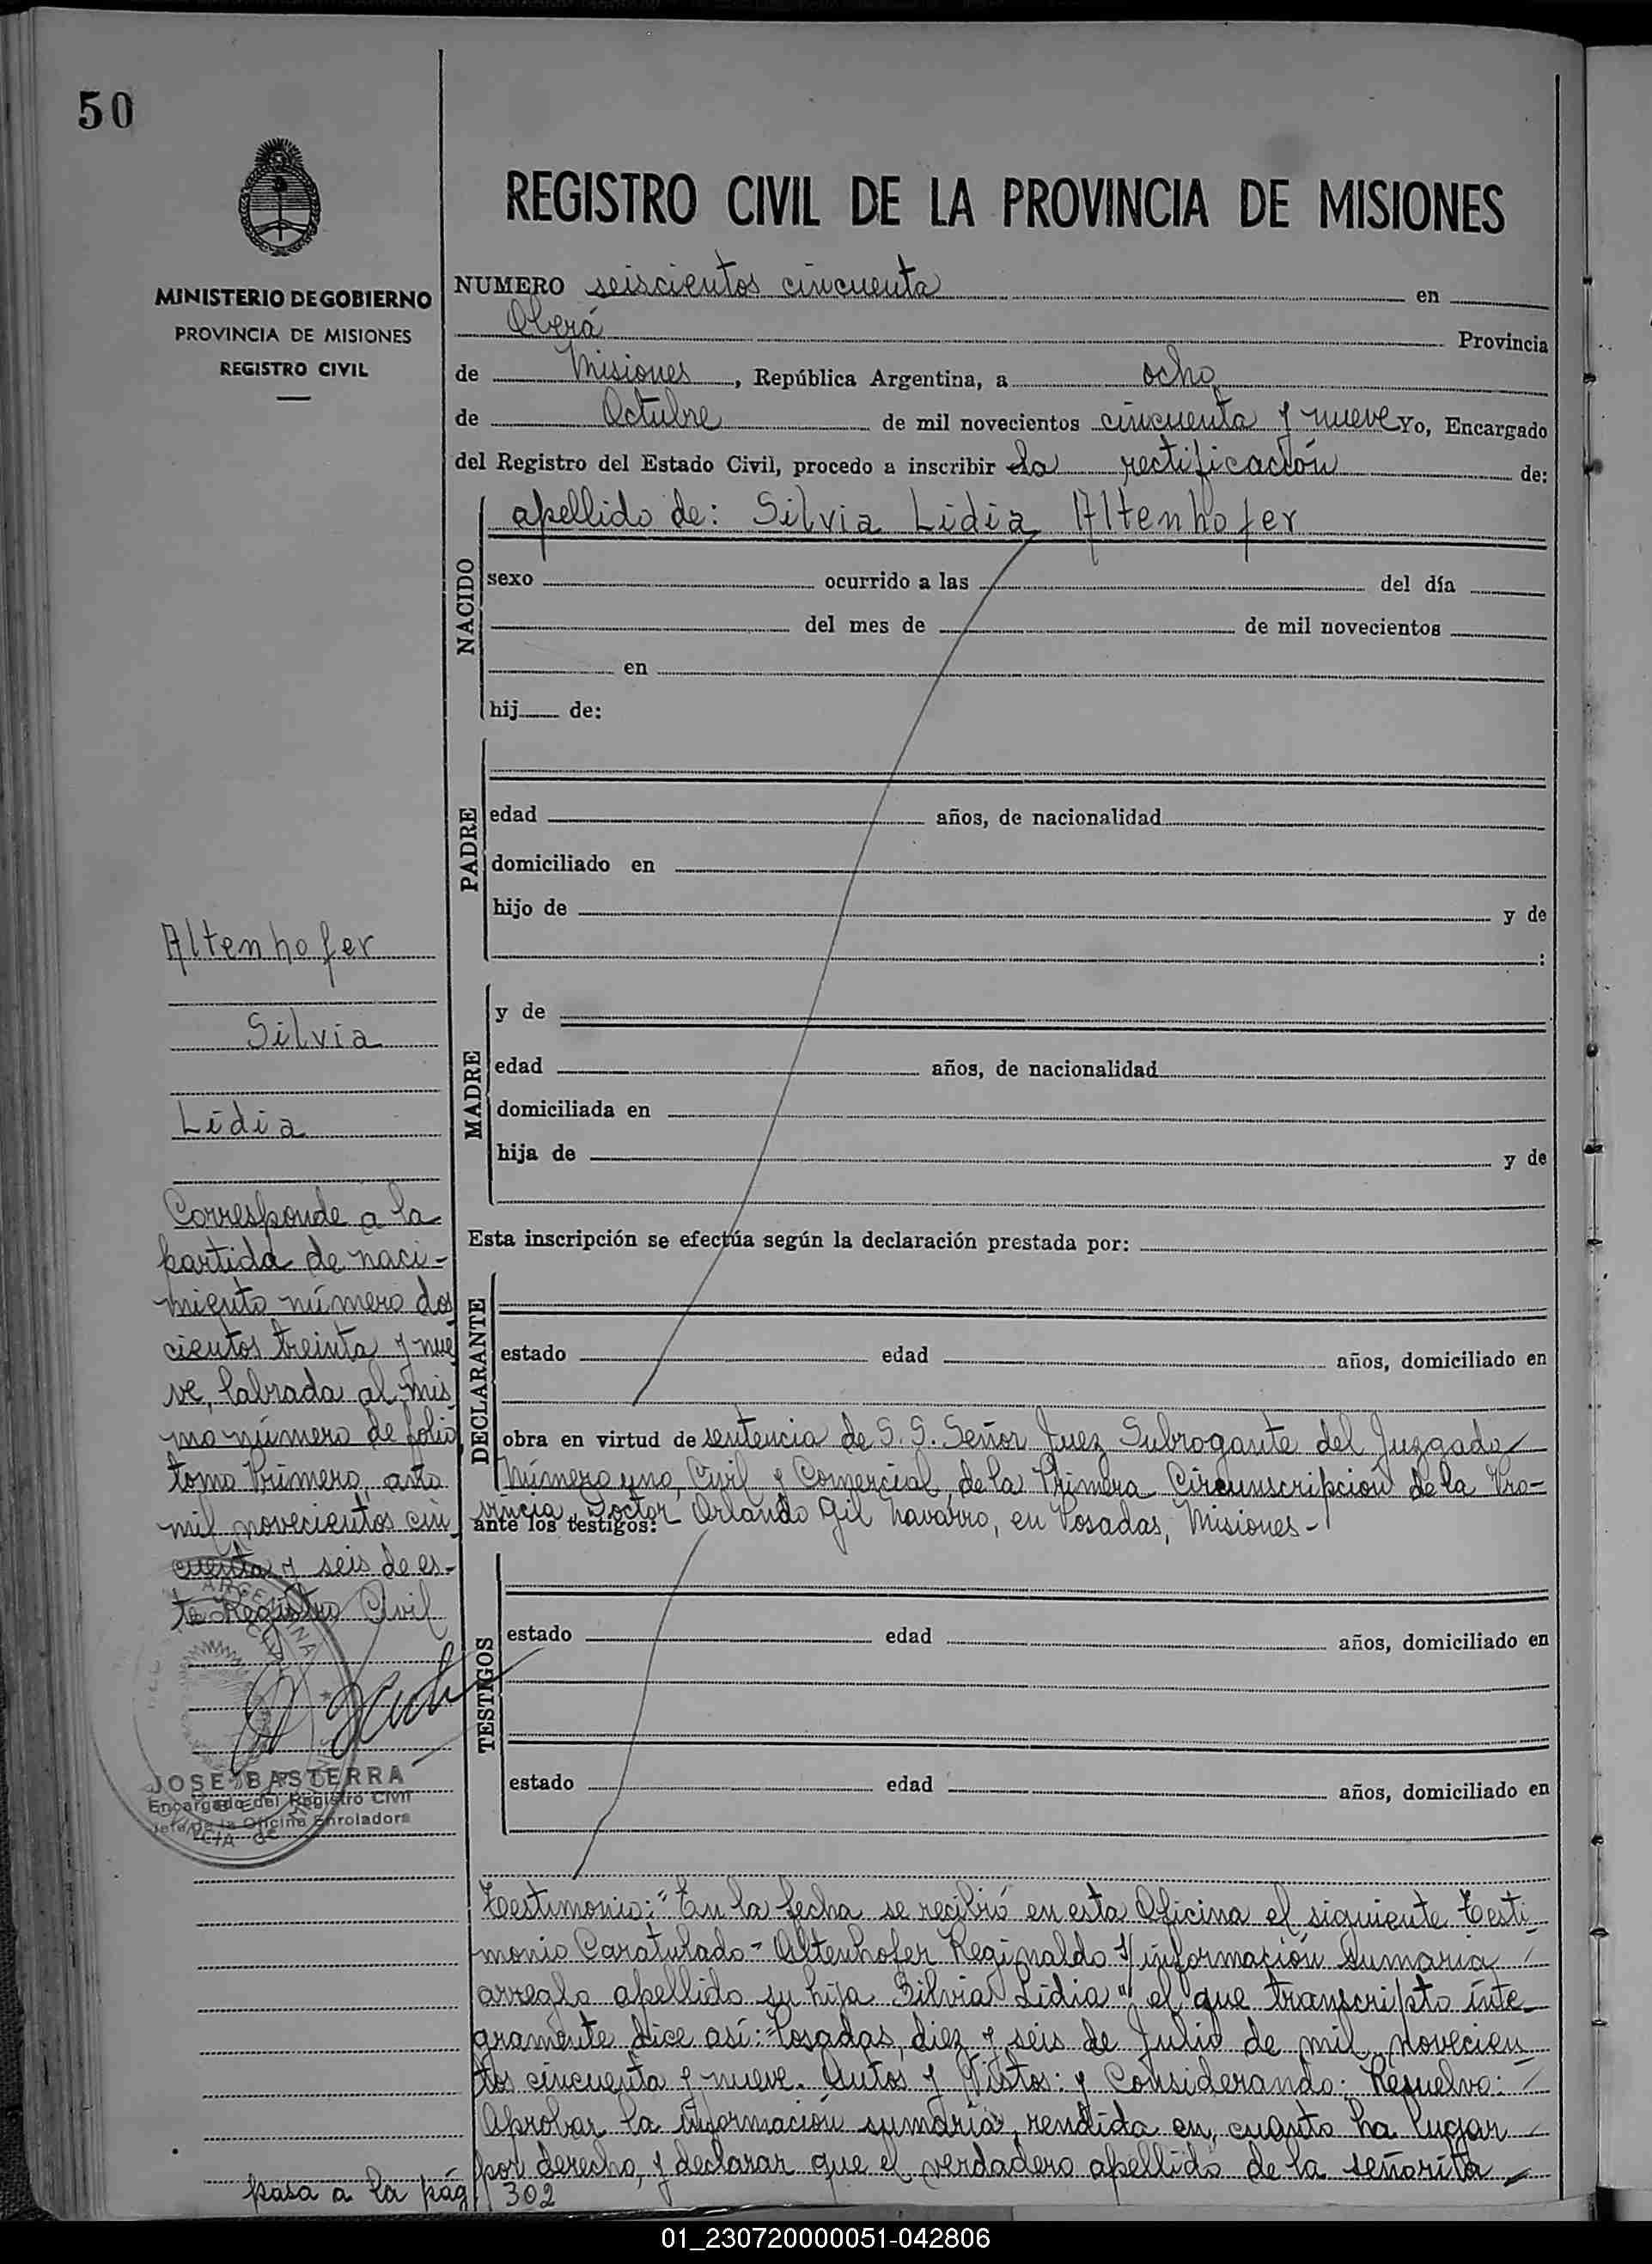 50
REGISTRO CIVIL DE LA PROVINCIA DE MISIONES
MINISTERIO DE GOBIERNO
PROVINCIA DE MISIONES
REGISTRO CIVIL
NUMERO seiscientos cincuenta en
Oberá Provincia
de Misiones, República Argentina, a ocho
de Octubre de mil novecientos cincuenta y nueve Yo, Encargado
del Registro del Estado Civil, procedo a inscribir la rectificación de:
NACIDO
apellido de: Silvia Lidia Altenhofer
sexo ocurrido a las del día
del mes de de mil novecientos
en
hij de:
PADRE
edad años, de nacionalidad
domiciliado en
hijo de y de
:
MADRE
y de
edad años, de nacionalidad
domiciliada en
hija de y de
Esta inscripción se efectúa según la declaración prestada por:
DECLARANTE
estado edad años, domiciliado en
obra en virtud de sentencia de S. S. Señor Juez Subrogante del Juzgado
Número uno, Civil y Comercial, de la Primera Circunscripción de la Pro-
vincia, Doctor Orlando Gil Navarro, en Posadas, Misiones -
ante los testigos:
TESTIGOS
estado edad años, domiciliado en
estado edad años, domiciliado en
Testimonio: "En la fecha se recibió en esta Oficina el siguiente Testi
monio Caratulado - Altenhofer Reginaldo s/ información sumaria
arreglo apellido su hija Silvia Lidia" el que transcripto inte-
gramente dice así: Posadas, diez y seis de Julio de mil novecien
tos cincuenta y nueve. Autos y Vistos: y Considerando: Resuelvo:
Aprobar la información sumaria, rendida en cuanto ha lugar
por derecho, y declarar que el verdadero apellido de la señorita
Altenhofer
Silvia
Lidia
Corresponde a la
partida de naci-
miento número dos
cientos treinta y nue
ve, labrada al mis
mo número de folio
tomo Primero, año
mil novecientos cin
cuenta y seis de es-
te Registro Civil
JOSE BASTERRA
Encargado del Registro Civil
Jefe de la Oficina Enroladora
pasa a la pág. 302
01_230720000051-042806